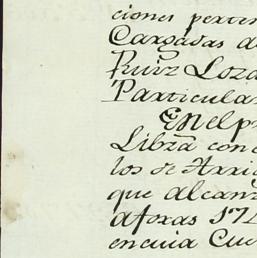 ciones perten
Cargadas d
Ruiz Loza
Particular
En el p
Libra con
los de Arri
que alcanz
aforas 174
en cuia Cu